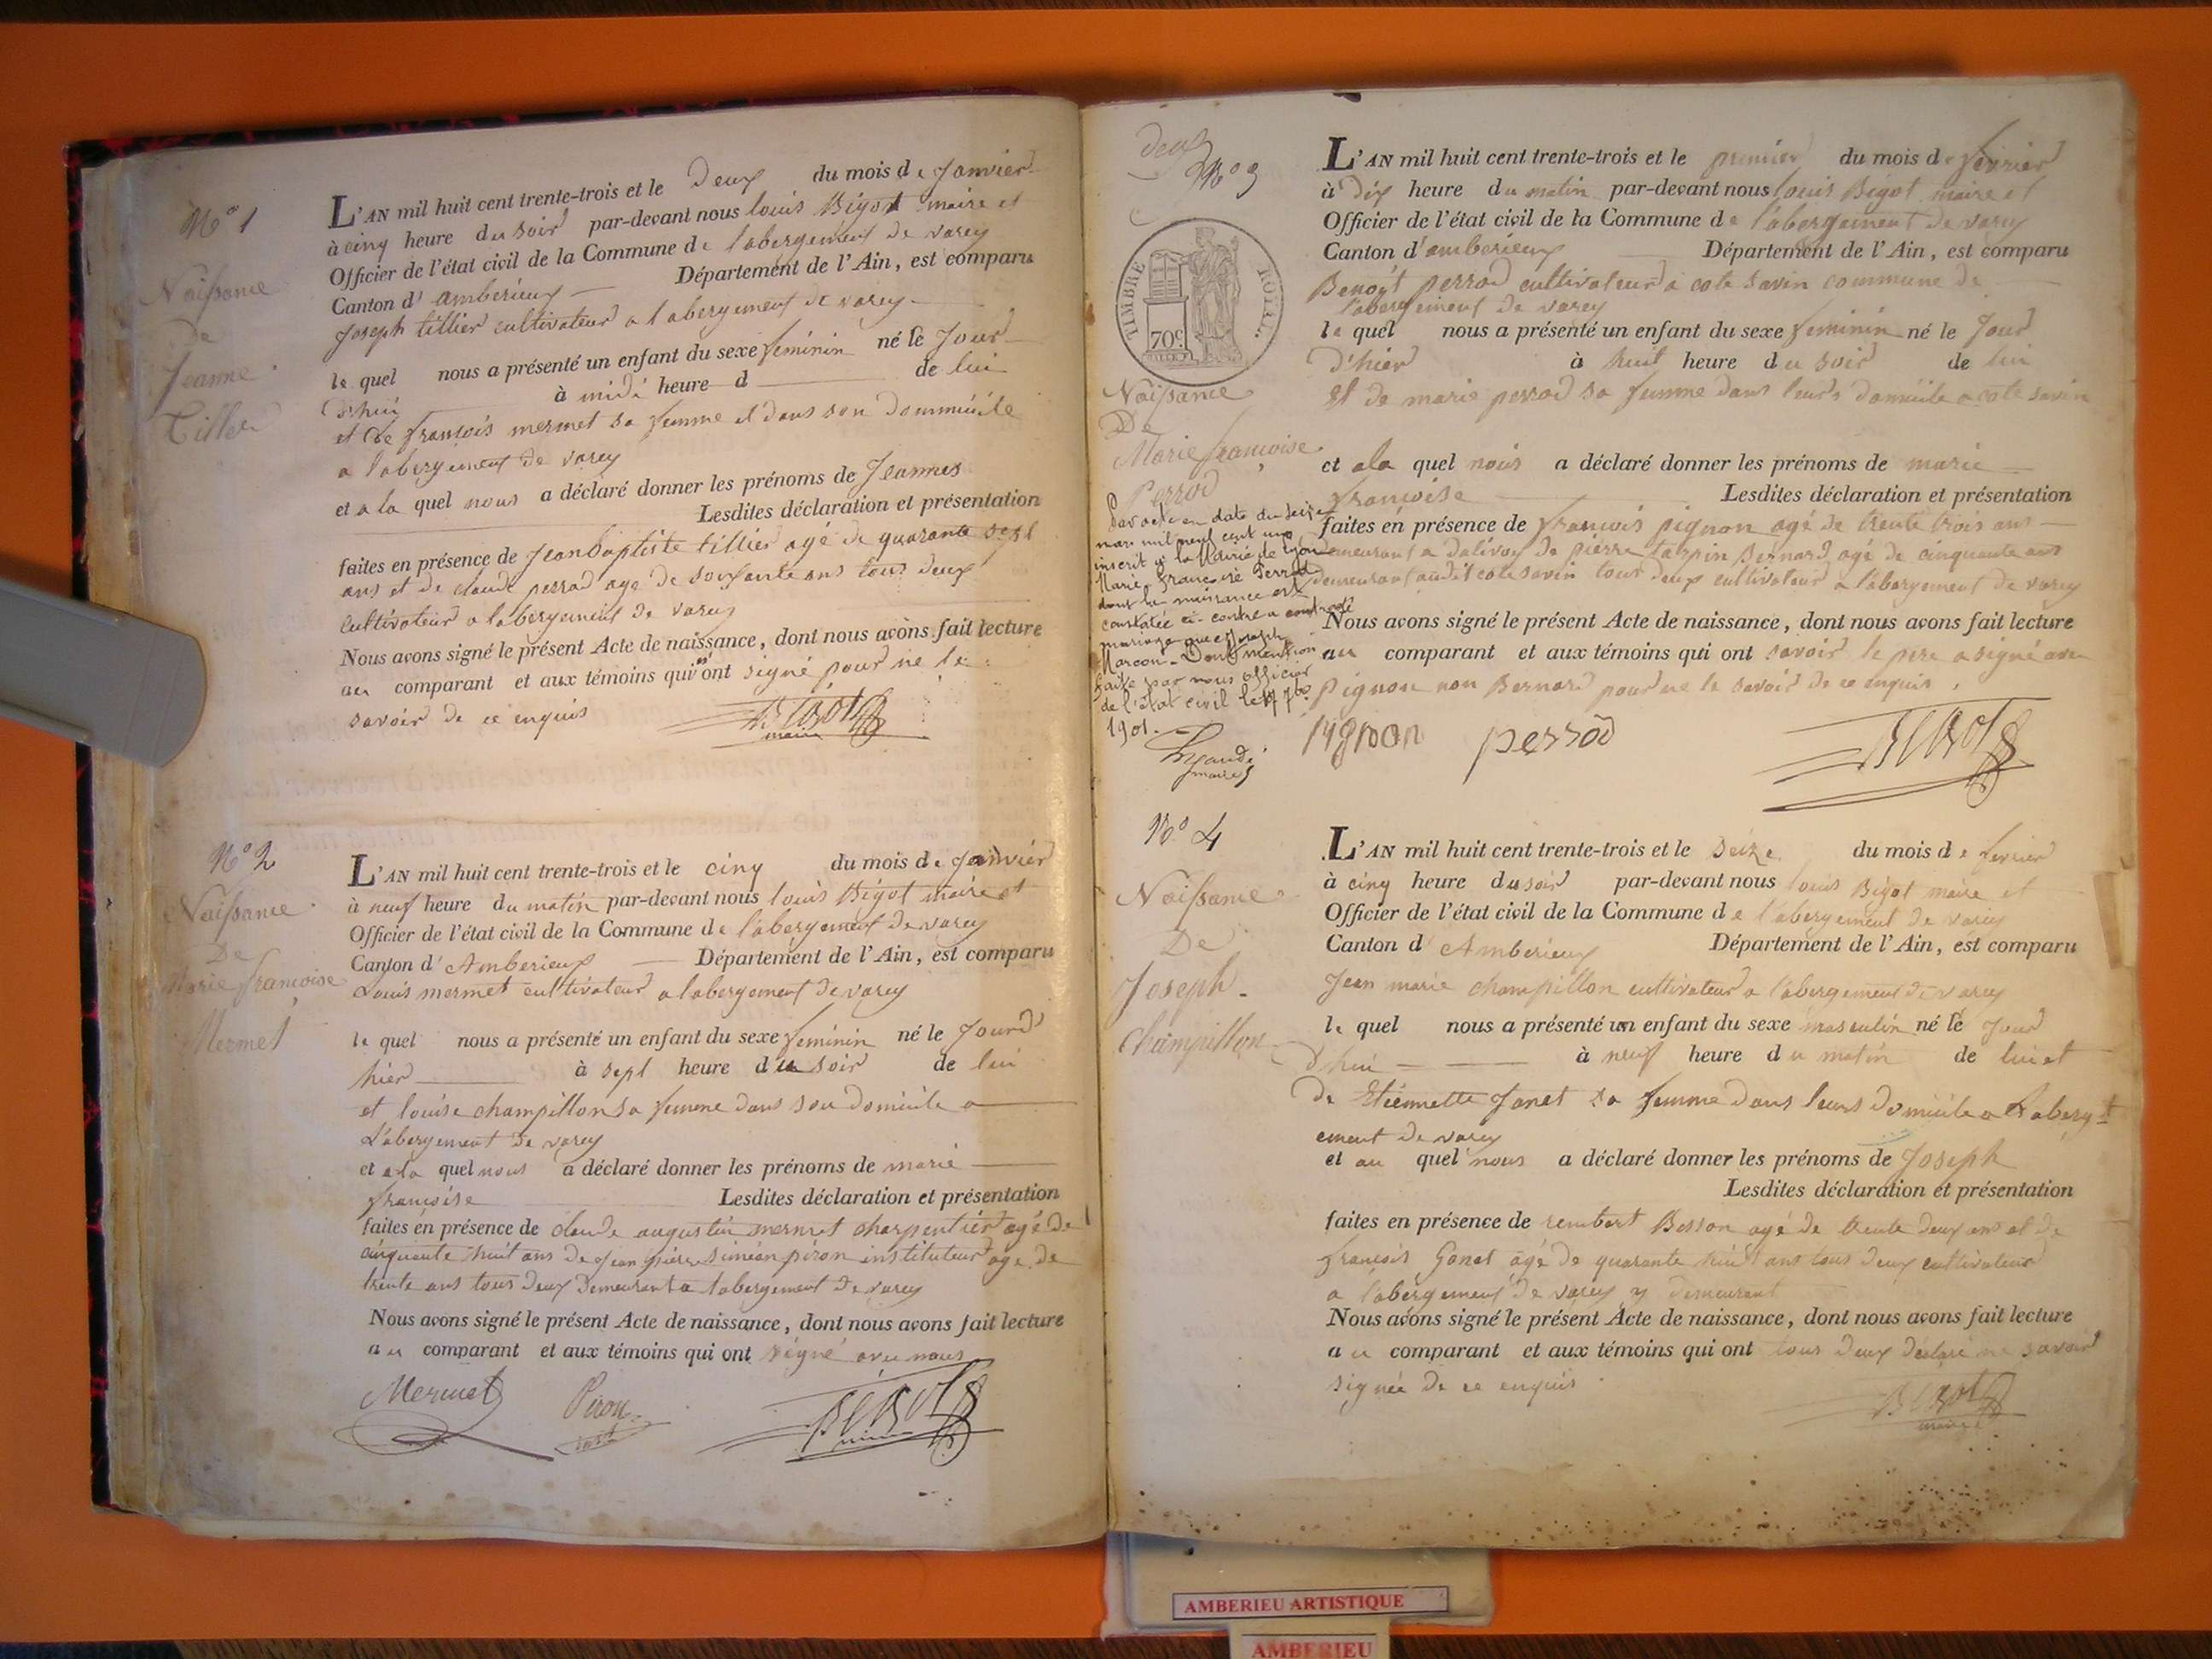 N° 1
Naissance
De
Jeanne
Tillier
L'AN mil huit cent trente-trois et le Deux du mois de Janvier
à cinq heure du soir par-devant nous louis Bigot maire et
Officier de l'état civil de la Commune de l'abergement de varey
Canton d'amberieux — Département de l'Ain, est comparu
Joseph tillier cultivateur a l'abergement de varey
le quel nous a présenté un enfant du sexe feminin né le Jour
d'hui à midi heure d de lui
et de françois mermet sa femme et dans son dommicile
a l'abergement de varey
et a la quel nous a déclaré donner les prénoms de Jeannes
Lesdites déclaration et présentation
faites en présence de Jean baptiste tillier agé de quarante sept
ans et de claude perrod age de soixante ans tous deux
cultivateur a l'abergement de varey
Nous avons signé le présent Acte de naissance, dont nous avons fait lecture
au comparant et aux témoins qui ont signé pour ne le
savoir de ce enquis
BIGOT
maire
N° 2
Naissance
De
Marie françoise
Mermet
L'AN mil huit cent trente-trois et le cinq du mois de Janvier
à neuf heure du matin par-devant nous louis Bigot maire et
Officier de l'état civil de la Commune de l'abergement de varey
Canton d'Amberieux — Département de l'Ain, est comparu
Louis mermet cultivateur a labergement de varey
le quel nous a présenté un enfant du sexe feminin né le Jourd
hier à sept heure du soir de lui
et louise champillon sa femme dans son domicile a
L'abergement de varey
et a la quel nous a déclaré donner les prénoms de marie
françoise Lesdites déclaration et présentation
faites en présence de claude augustin mermet charpentier agé de
cinquante huit ans de Jean pierre siméon piron instituteur age de
trente ans tous deux Demeurant a labergement de varey
Nous avons signé le présent Acte de naissance, dont nous avons fait lecture
au comparant et aux témoins qui ont signé avec nous
Mermet Piron BIGOT
Deux
N° 3
TIMBRE ROYAL
70c
Naissance
De
Marie françoise
Perrod
Par acte en date du seize
mars mil neuf cent un
inscrit à la Mairie de Lyon
Marie Françoise Perrod
dont la naissance est
constatée ci-contre a contracté
mariage avec Joseph
Marcon. Dont mention
faite par nous officier
de l'état civil le 7bre
1901.
maire
L'AN mil huit cent trente-trois et le premier du mois de fevrier
à Dix heure du matin par-devant nous louis Bigot maire et
Officier de l'état civil de la Commune de l'abergement de varey
Canton d'amberieux Département de l'Ain, est comparu
Benoit perrod cultivateur a cote savin commune de
l'abergement de varey
le quel nous a présenté un enfant du sexe feminin né le Jour
D'hier à huit heure du soir de lui
et de marie perrod sa femme dans leurs domicile a cote savin
et a la quel nous a déclaré donner les prénoms de marie
françoise Lesdites déclaration et présentation
faites en présence de françois pignon agé de trente trois ans
demeurant a dalivoy de pierre tarpin Bernard agé de cinquante ans
demeurant audit cote savin tous deux cultivateur a l'abergement de varey
Nous avons signé le présent Acte de naissance, dont nous avons fait lecture
au comparant et aux témoins qui ont savoir le pere a signé avec
pignon non Bernard pour ne le savoir de ce enquis.
Pignon perrod BIGOT
N° 4
Naissance
De
Joseph
Champillon
L'AN mil huit cent trente-trois et le seize du mois de fevrier
à cinq heure du soir par-devant nous louis Bigot maire et
Officier de l'état civil de la Commune de l'abergement de varey
Canton d'Amberieux Département de l'Ain, est comparu
Jean marie champillon cultivateur a l'abergement de varey
le quel nous a présenté un enfant du sexe masculin né le Jour
D'hui à neuf heure du matin de lui et
De Etiennette Janet sa femme dans leurs domicile a L'aberg
ement de varey
et au quel nous a déclaré donner les prénoms de Joseph
Lesdites déclaration et présentation
faites en présence de rembert Besson agé de trente deux ans et de
françois Ganet agé de quarante huit ans tous deux cultivateur
a l'abergement de varey y demeurant
Nous avons signé le présent Acte de naissance, dont nous avons fait lecture
au comparant et aux témoins qui ont tous deux déclaré ne savoir
signée de ce enquis
BIGOT
maire
AMBERIEU ARTISTIQUE
AMBERIEU